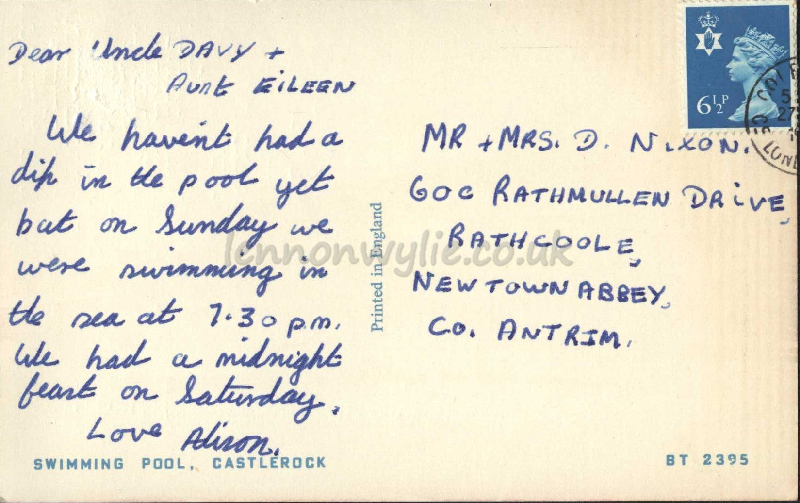 Dear Uncle DAVY +
Aunt EILEEN
We havent had a
dip in the pool yet
but on Sunday we
were swimming in
the sea at 7.30 p.m.
We had a midnight
feast on Saturday.
Love Alison.
SWIMMING POOL, CASTLEROCK
Printed in England
6½P
MR + MRS. D. NIXON.
60C RATHMULLEN DRIVE,
RATHCOOLE,
NEWTOWNABBEY,
CO. ANTRIM.
BT 2395
lennonwylie.co.uk